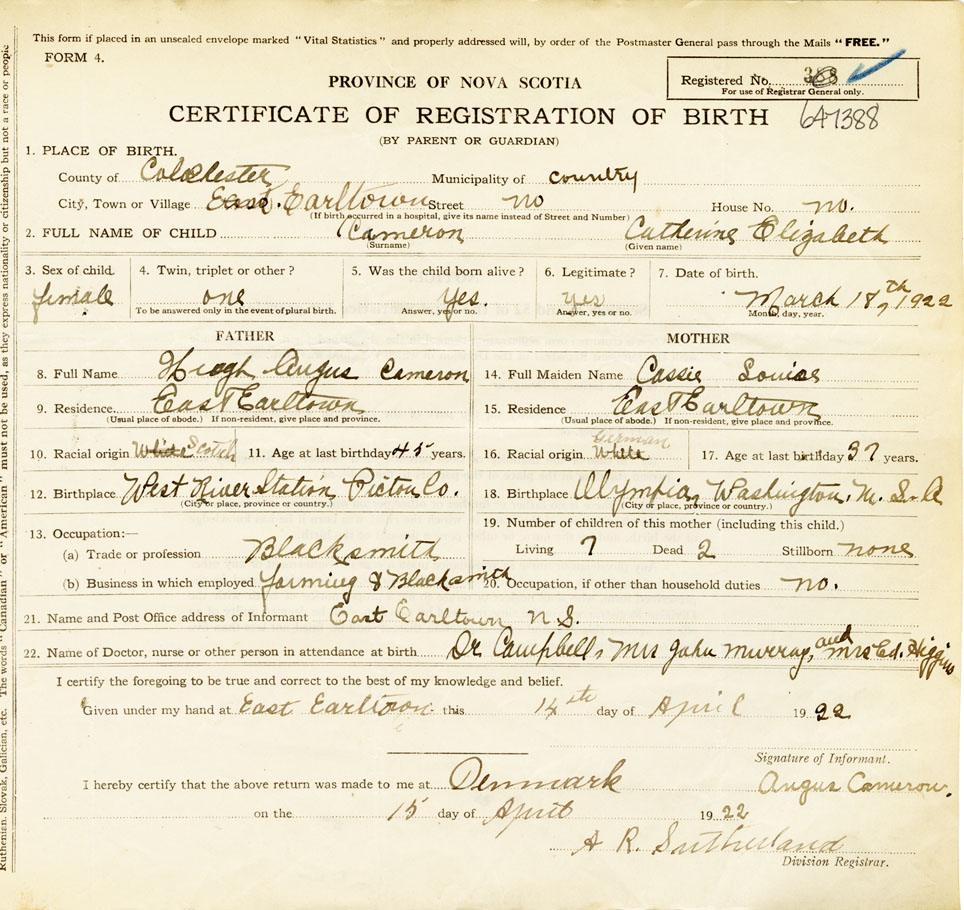 This form if placed in an unsealed envelope marked "Vital Statistics" and properly addressed will, by order of the Postmaster General pass through the Mails "FREE."
FORM 4.
Registered No. 388
For use of Registrar General only.
PROVINCE OF NOVA SCOTIA
CERTIFICATE OF REGISTRATION OF BIRTH 647388
(BY PARENT OR GUARDIAN)
1. PLACE OF BIRTH.
County of Colchester Municipality of country
City, Town or Village East. Earltown Street no House No. no.
(If birth occurred in a hospital, give its name instead of Street and Number)
2. FULL NAME OF CHILD Cameron Catherine Elizabeth
(Surname) (Given name)
3. Sex of child. 4. Twin, triplet or other? 5. Was the child born alive? 6. Legitimate? 7. Date of birth.
female one yes. yes March 18th, 1922
To be answered only in the event of plural birth. Answer, yes or no. Answer, yes or no. Month, day, year.
FATHER MOTHER
8. Full Name Hiogh Angus Cameron 14. Full Maiden Name Cassie Louise
9. Residence. East Earltown 15. Residence East Earltown
(Usual place of abode.) If non-resident, give place and province. (Usual place of abode.) If non-resident, give place and province.
10. Racial origin White Scotch 11. Age at last birthday 45 years. 16. Racial origin White German 17. Age at last birthday 37 years.
12. Birthplace West River Station Pictou Co. 18. Birthplace Olympia, Washington, U. S. A
(City or place, province or country.) (City or place, province or country.)
13. Occupation:— 19. Number of children of this mother (including this child.)
(a) Trade or profession Blacksmith Living 7 Dead 2 Stillborn none
(b) Business in which employed farming & Blacksmith 20. Occupation, if other than household duties no.
21. Name and Post Office address of Informant East Earltown N.S.
22. Name of Doctor, nurse or other person in attendance at birth Dr Campbell, Mrs John Murray, and Mrs Ed. Higgins
I certify the foregoing to be true and correct to the best of my knowledge and belief.
Given under my hand at East Earltown this 14th day of April 1922
Signature of Informant.
I hereby certify that the above return was made to me at Denmark Angus Cameron.
on the 15 day of April 1922
A R. Sutherland
Division Registrar.
Ruthenian, Slovak, Galician, etc. The words "Canadian" or "American" must not be used, as they express nationality or citizenship but not a race or people